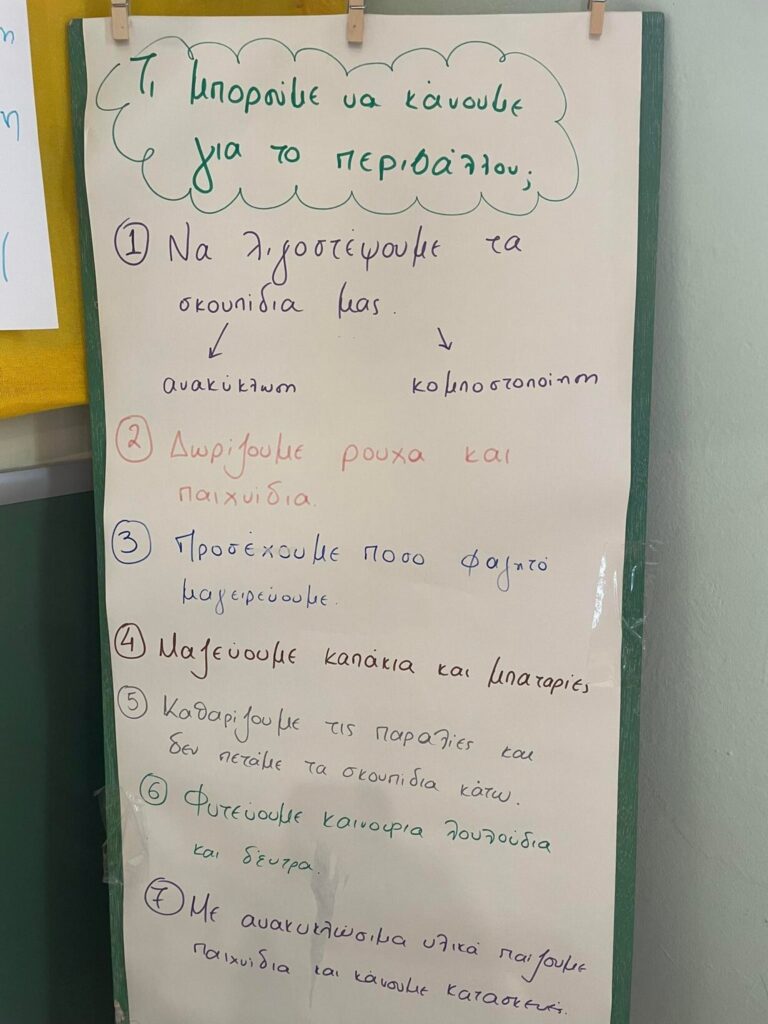 Τι μπορούμε να κάνουμε
για το περιβάλλον;
① Να λιγοστέψουμε τα
σκουπίδια μας.
ανακύκλωση κομποστοποίηση
② Δωρίζουμε ρουχα και
παιχνίδια.
③ Προσέχουμε ποσο φαγητό
μαγειρεύουμε.
④ Μαζεύουμε καπάκια και μπαταρίες
⑤ Καθαρίζουμε τις παραλίες και
δεν πετάμε τα σκουπίδια κάτω.
⑥ Φυτεύουμε καινούρια λουλούδια
και δέντρα.
⑦ Με ανακυκλώσιμα υλικά παίζουμε
παιχνίδια και κάνουμε κατασκευές.